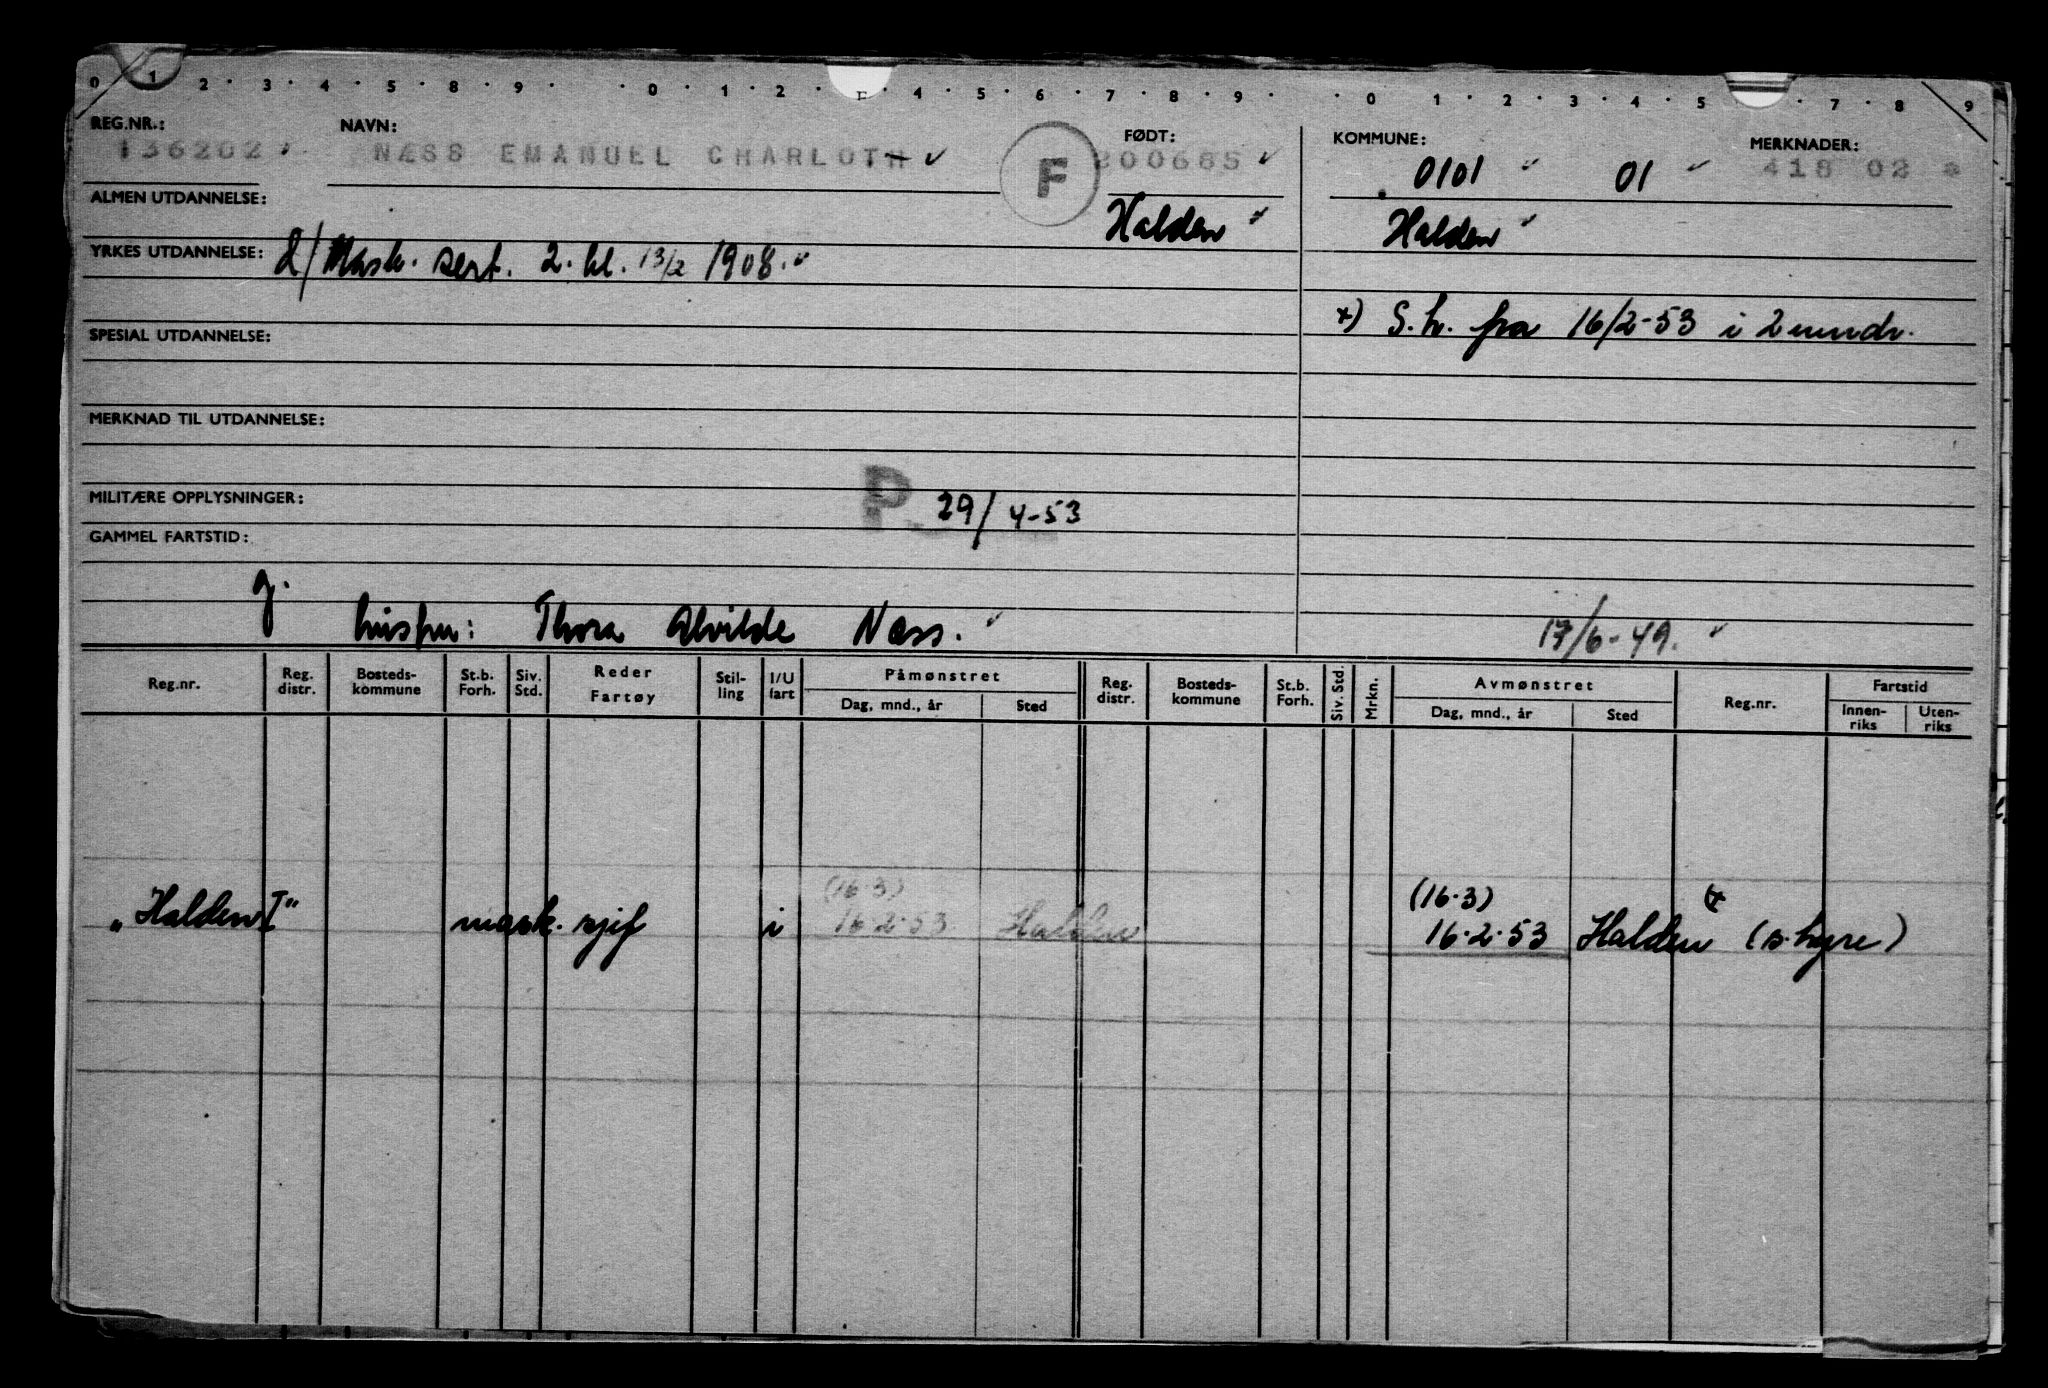 0 1 2 · 3 · 4 · 5 · 8 · 9 · · 0 · 1 · 2 · F · 4 · 5 · 6 · 7 · 8 · 9 · · 0 · 1 · 2 · 3 · 4 · 5 · 7 · 8 9
REG.NR.: NAVN: FØDT: KOMMUNE: MERKNADER:
136202 NÆSS EMANUEL CHARLOTH F 200685 0101 01 418 02 a
ALMEN UTDANNELSE: Halden Halden
YRKES UTDANNELSE: d/Mask. sert. 2. kl. 13/2 1908.
SPESIAL UTDANNELSE: +) S.h. fra 16/2-53 i 2 mndr.
MERKNAD TIL UTDANNELSE:
MILITÆRE OPPLYSNINGER: P. 29/4-53
GAMMEL FARTSTID:
g. hustru: Thora Alvilde Næss. 17/6-49.
Reg.nr. Reg. distr. Bosteds-kommune St.b. Forh. Siv. Std. Reder Fartøy Stil-ling I/U fart Påmønstret Reg. distr. Bosteds-kommune St.b. Forh. Siv. Std. Mrkn. Avmønstret Reg.nr. Fartstid
Dag, mnd., år Sted Dag, mnd., år Sted Innen-riks Uten-riks
(16.3) (16.3) +
"Halden I" mask. sjef i 16.2.53 Halden 16.2.53 Halden (s.hyre)